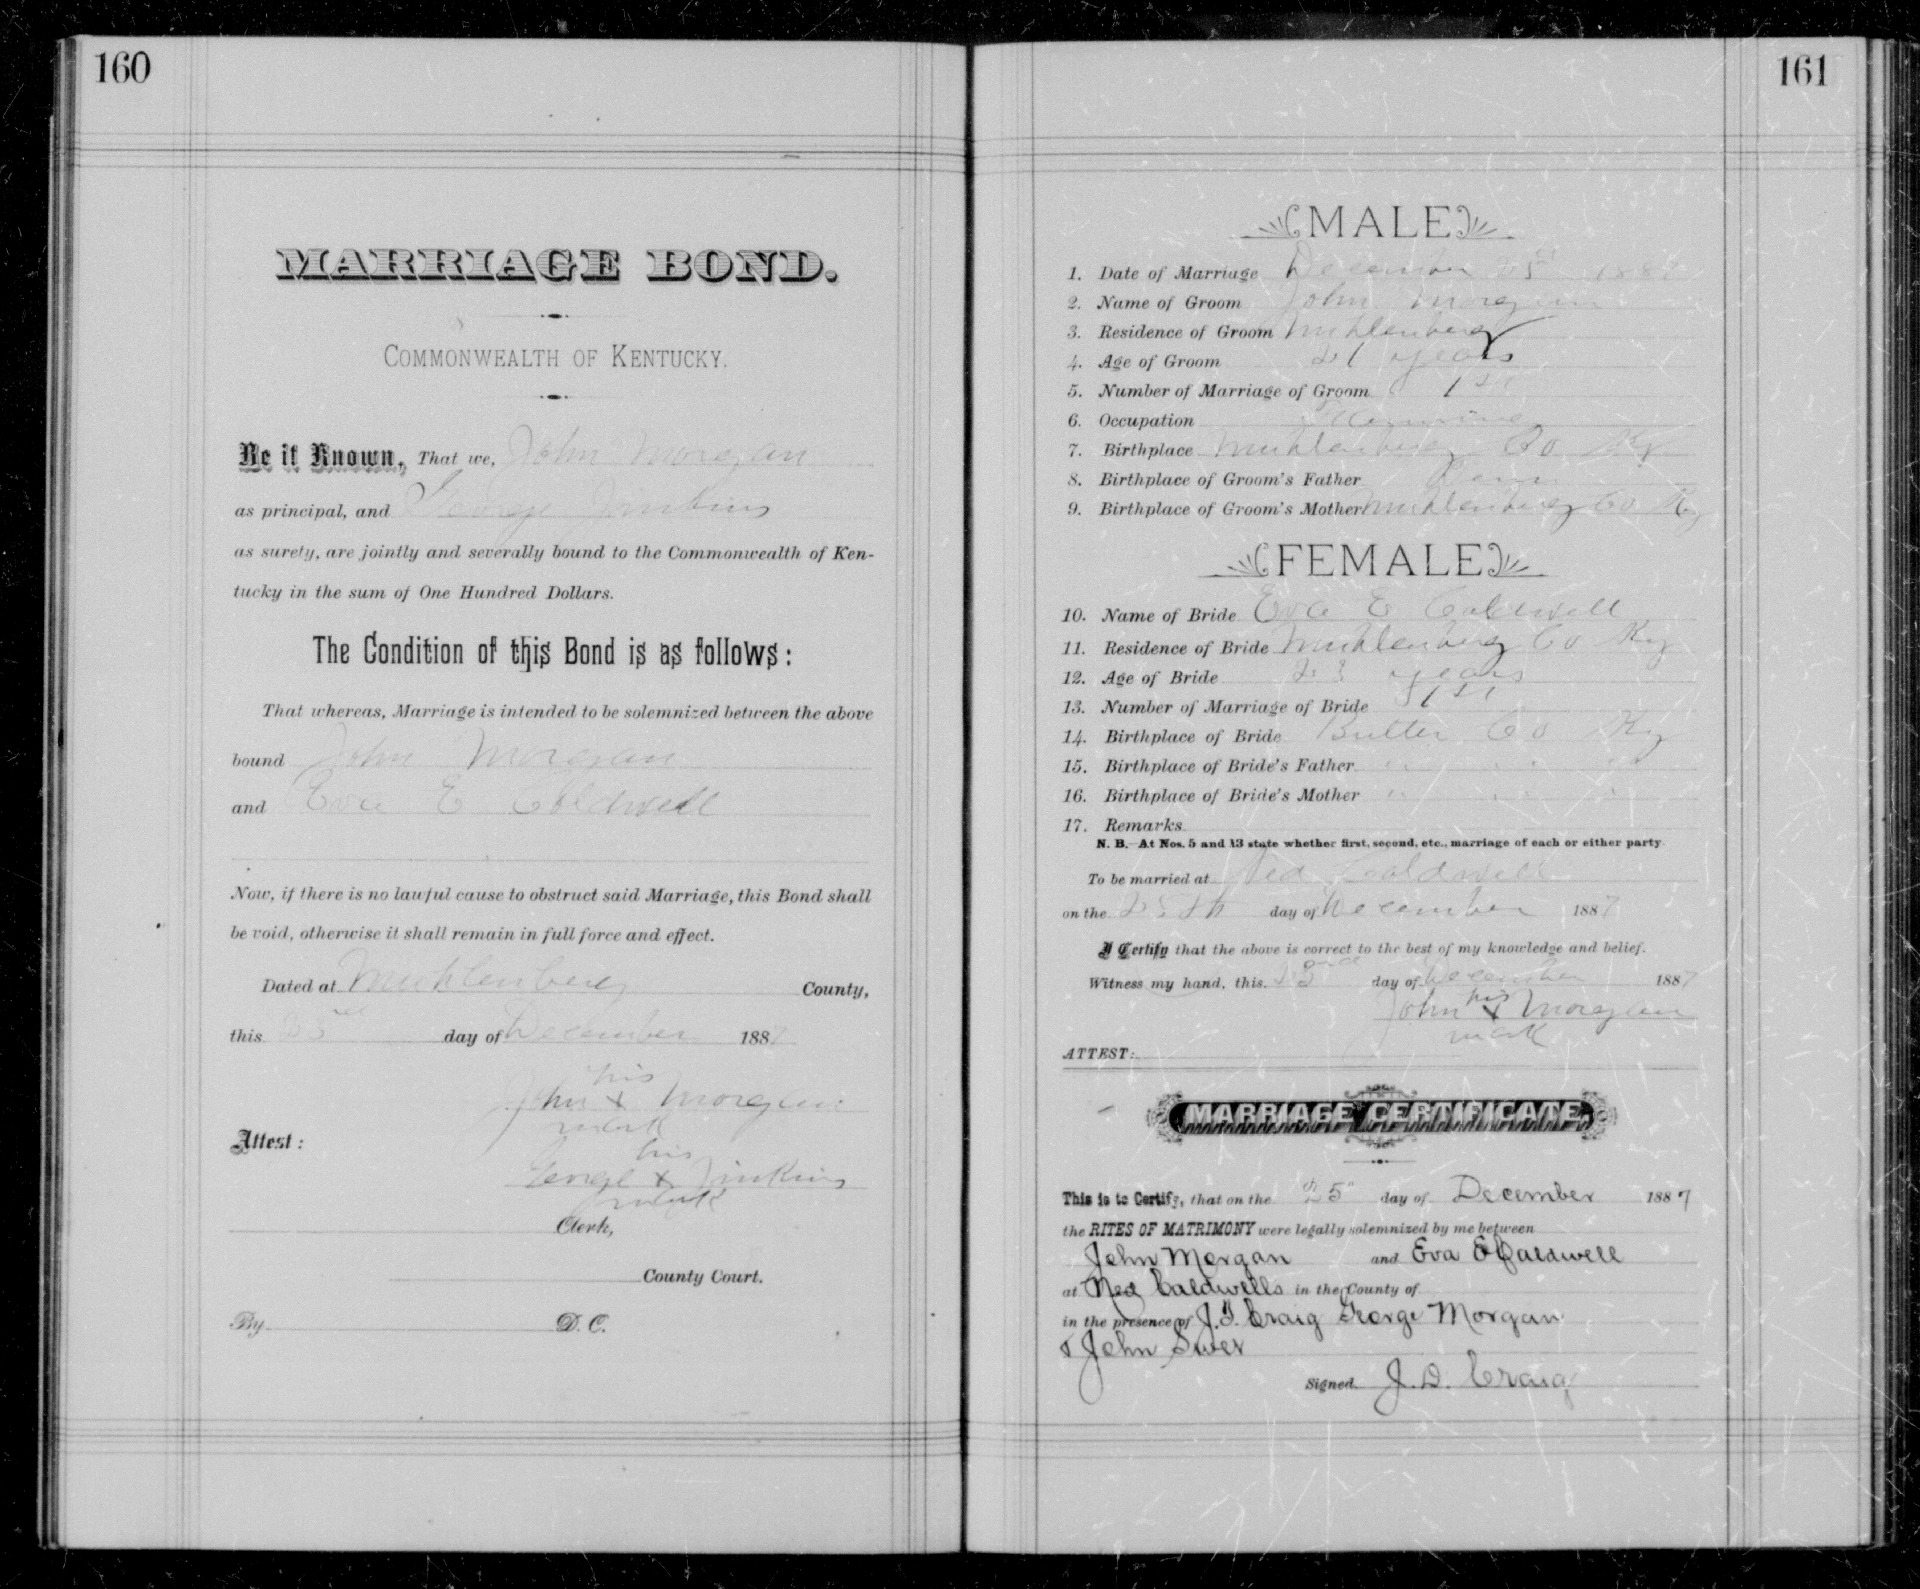 160
MARRIAGE BOND.
COMMONWEALTH OF KENTUCKY.
Be it Known, That we, John Morgan
as principal, and George Jinkins
as surety, are jointly and severally bound to the Commonwealth of Ken-
tucky in the sum of One Hundred Dollars.
The Condition of this Bond is as follows:
That whereas, Marriage is intended to be solemnized between the above
bound John Morgan
and Eva E Coldwell
Now, if there is no lawful cause to obstruct said Marriage, this Bond shall
be void, otherwise it shall remain in full force and effect.
Dated at Muhlenberg County,
this 23rd day of December 1887
his
John x Morgan
mark
Attest:
his
George x Jinkins
mark
Clerk,
County Court.
By D. C.
161
MALE
1. Date of Marriage December 25th 1887
2. Name of Groom John Morgan
3. Residence of Groom Muhlenberg
4. Age of Groom 21 years
5. Number of Marriage of Groom 1st
6. Occupation
7. Birthplace Muhlenberg Co Ky
8. Birthplace of Groom's Father Tenn
9. Birthplace of Groom's Mother Muhlenberg Co Ky
FEMALE
10. Name of Bride Eva E Coldwell
11. Residence of Bride Muhlenberg Co Ky
12. Age of Bride 23 years
13. Number of Marriage of Bride 1st
14. Birthplace of Bride Butler Co Ky
15. Birthplace of Bride's Father " " "
16. Birthplace of Bride's Mother " " "
17. Remarks
N. B. At Nos. 5 and 13 state whether first, second, etc., marriage of each or either party
To be married at Ned Caldwell
on the 25th day of December 1887
I Certify that the above is correct to the best of my knowledge and belief.
Witness my hand, this 23rd day of December 1887
his
John x Morgan
mark
ATTEST:
MARRIAGE CERTIFICATE.
This is to Certify, that on the 25" day of December 1887
the RITES OF MATRIMONY were legally solemnized by me between
John Morgan and Eva E Caldwell
at Ned Caldwells in the County of
in the presence of J. T. Craig George Morgan
& John
Signed. J. D. Craig